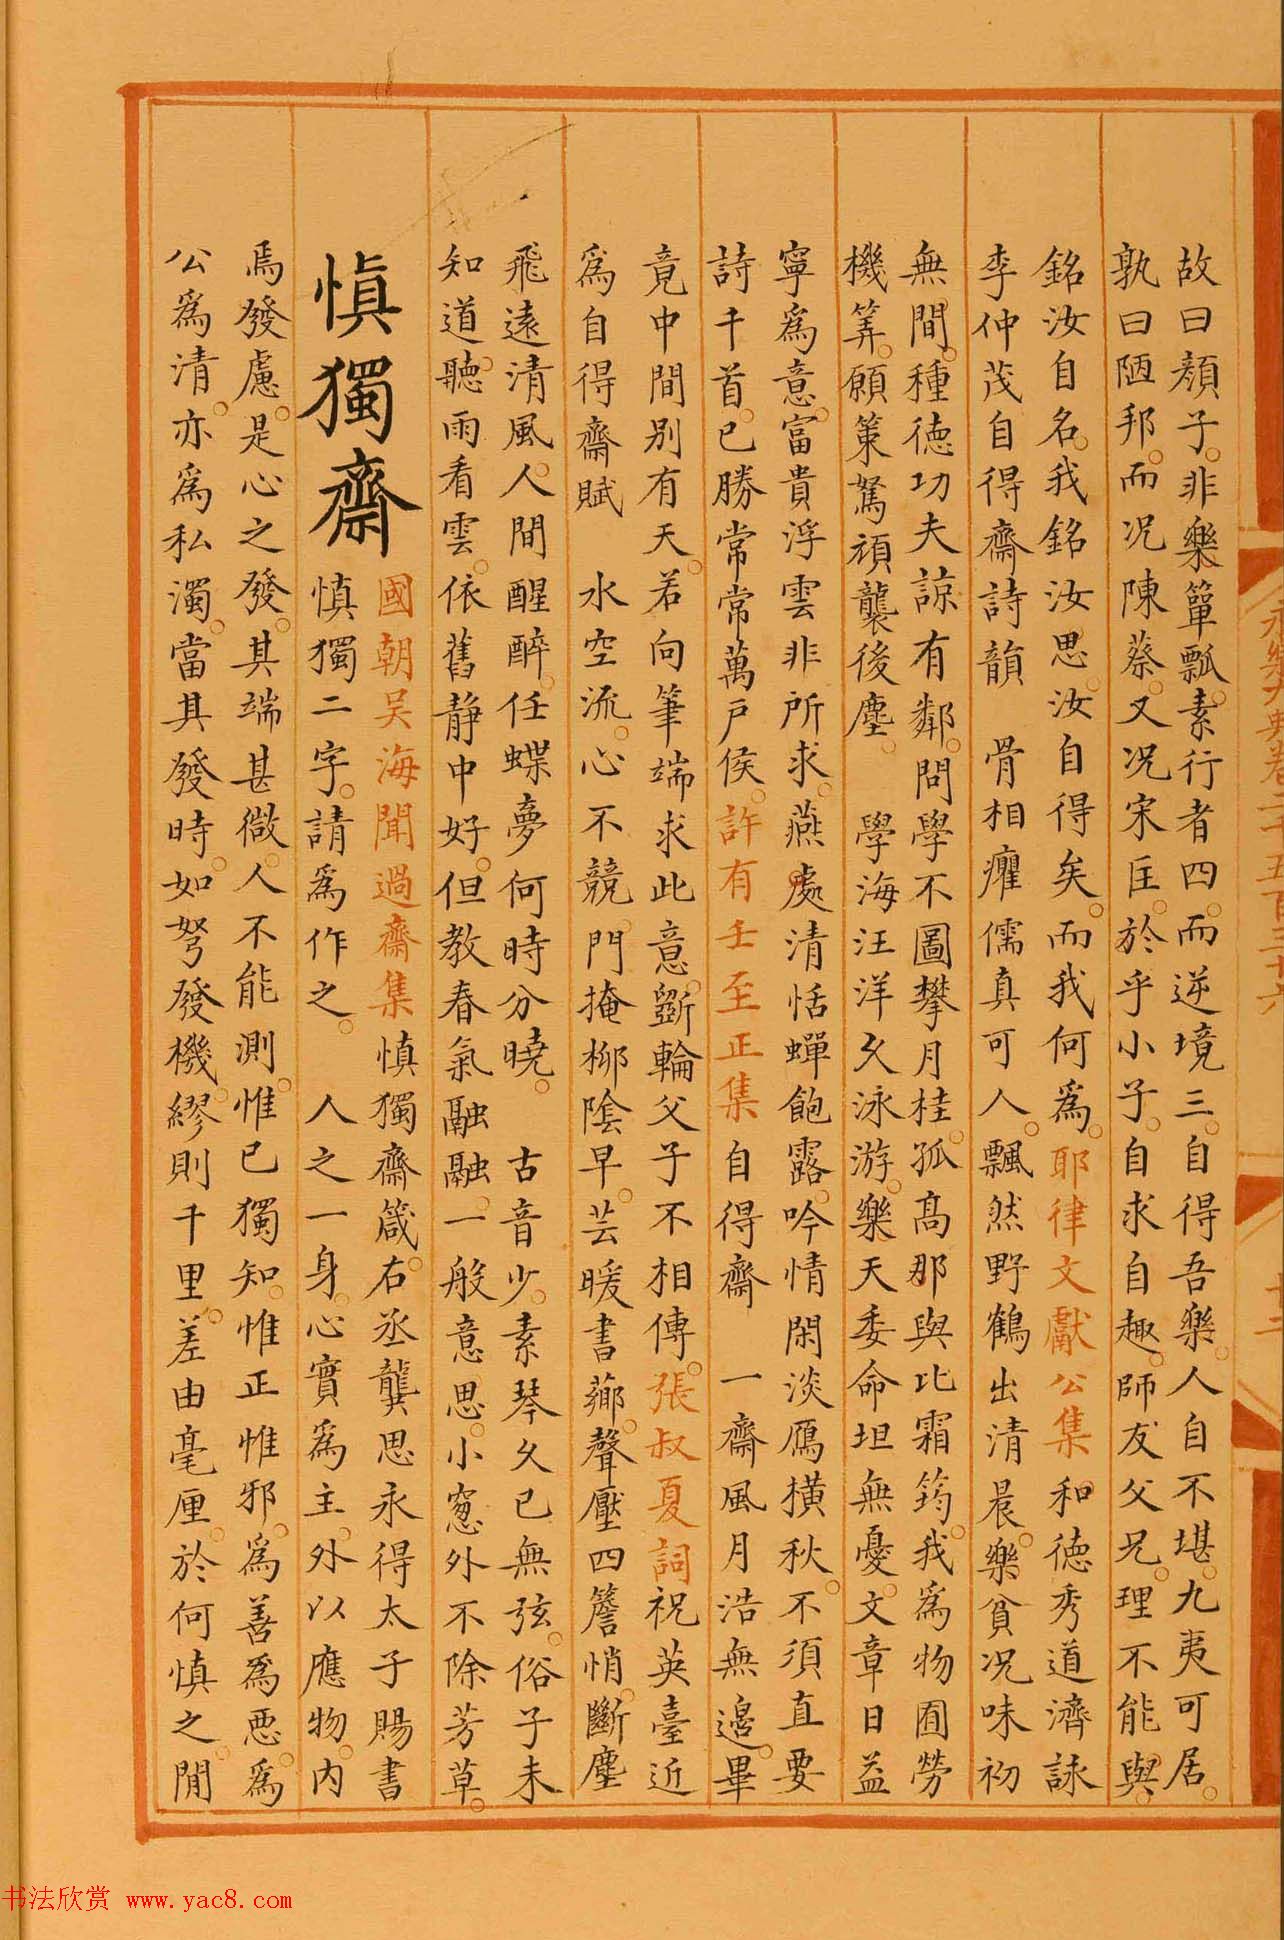 故曰顔子。非樂簞瓢。素行者四。而逆境三。自得吾樂。人自不堪。九夷可居。
孰曰陋邦。而况陳蔡。又况宋匡。於乎小子。自求自趣。師友父兄。理不能與。
銘汝自名。我銘汝思。汝自得矣。而我何為。耶律文獻公集。和德秀道濟詠
李仲茂自得齋詩韻　骨相癯儒真可人。飄然野鶴出清晨。樂貧况味初
無間。種德功夫諒有鄰。問學不圖攀月桂。孤高那與比霜筠。我為物囿勞
機筭。願策駑頑襲後塵。　學海汪洋久泳游。樂天委命坦無憂。文章日益
寧為意。富貴浮雲非所求。燕處清恬蟬飽露。吟情閑淡鴈橫秋。不須直要
詩千首。已勝常常萬戶侯。許有壬至正集　自得齋　一齋風月浩無邊。畢
竟中間別有天。若向筆端求此意。斲輪父子不相傳。張叔夏詞祝英臺近
為自得齋賦　水空流。心不競。門掩柳陰早。芸暖書薌。聲壓四簷悄。斷塵
飛遠清風。人間醒醉。任蝶夢何時分曉。　古音少。素琴久已無弦。俗子未
知道。聽雨看雲。依舊静中好。但教春氣融融。一般意思。小窻外不除芳草。
慎獨齋
國朝吴海聞過齋集　慎獨齋箴。右丞龔思永得太子賜書
慎獨二字。請為作之。　人之一身。心實為主。外以應物。内
焉發慮。是心之發。其端甚微。人不能測。惟已獨知。惟正惟邪。為善為惡。為
公為清。亦為私濁。當其發時。如弩發機。繆則千里。差由毫厘。於何慎之。閒
永樂大典卷二千五百三十六
十三
书法欣赏 www.yac8.com